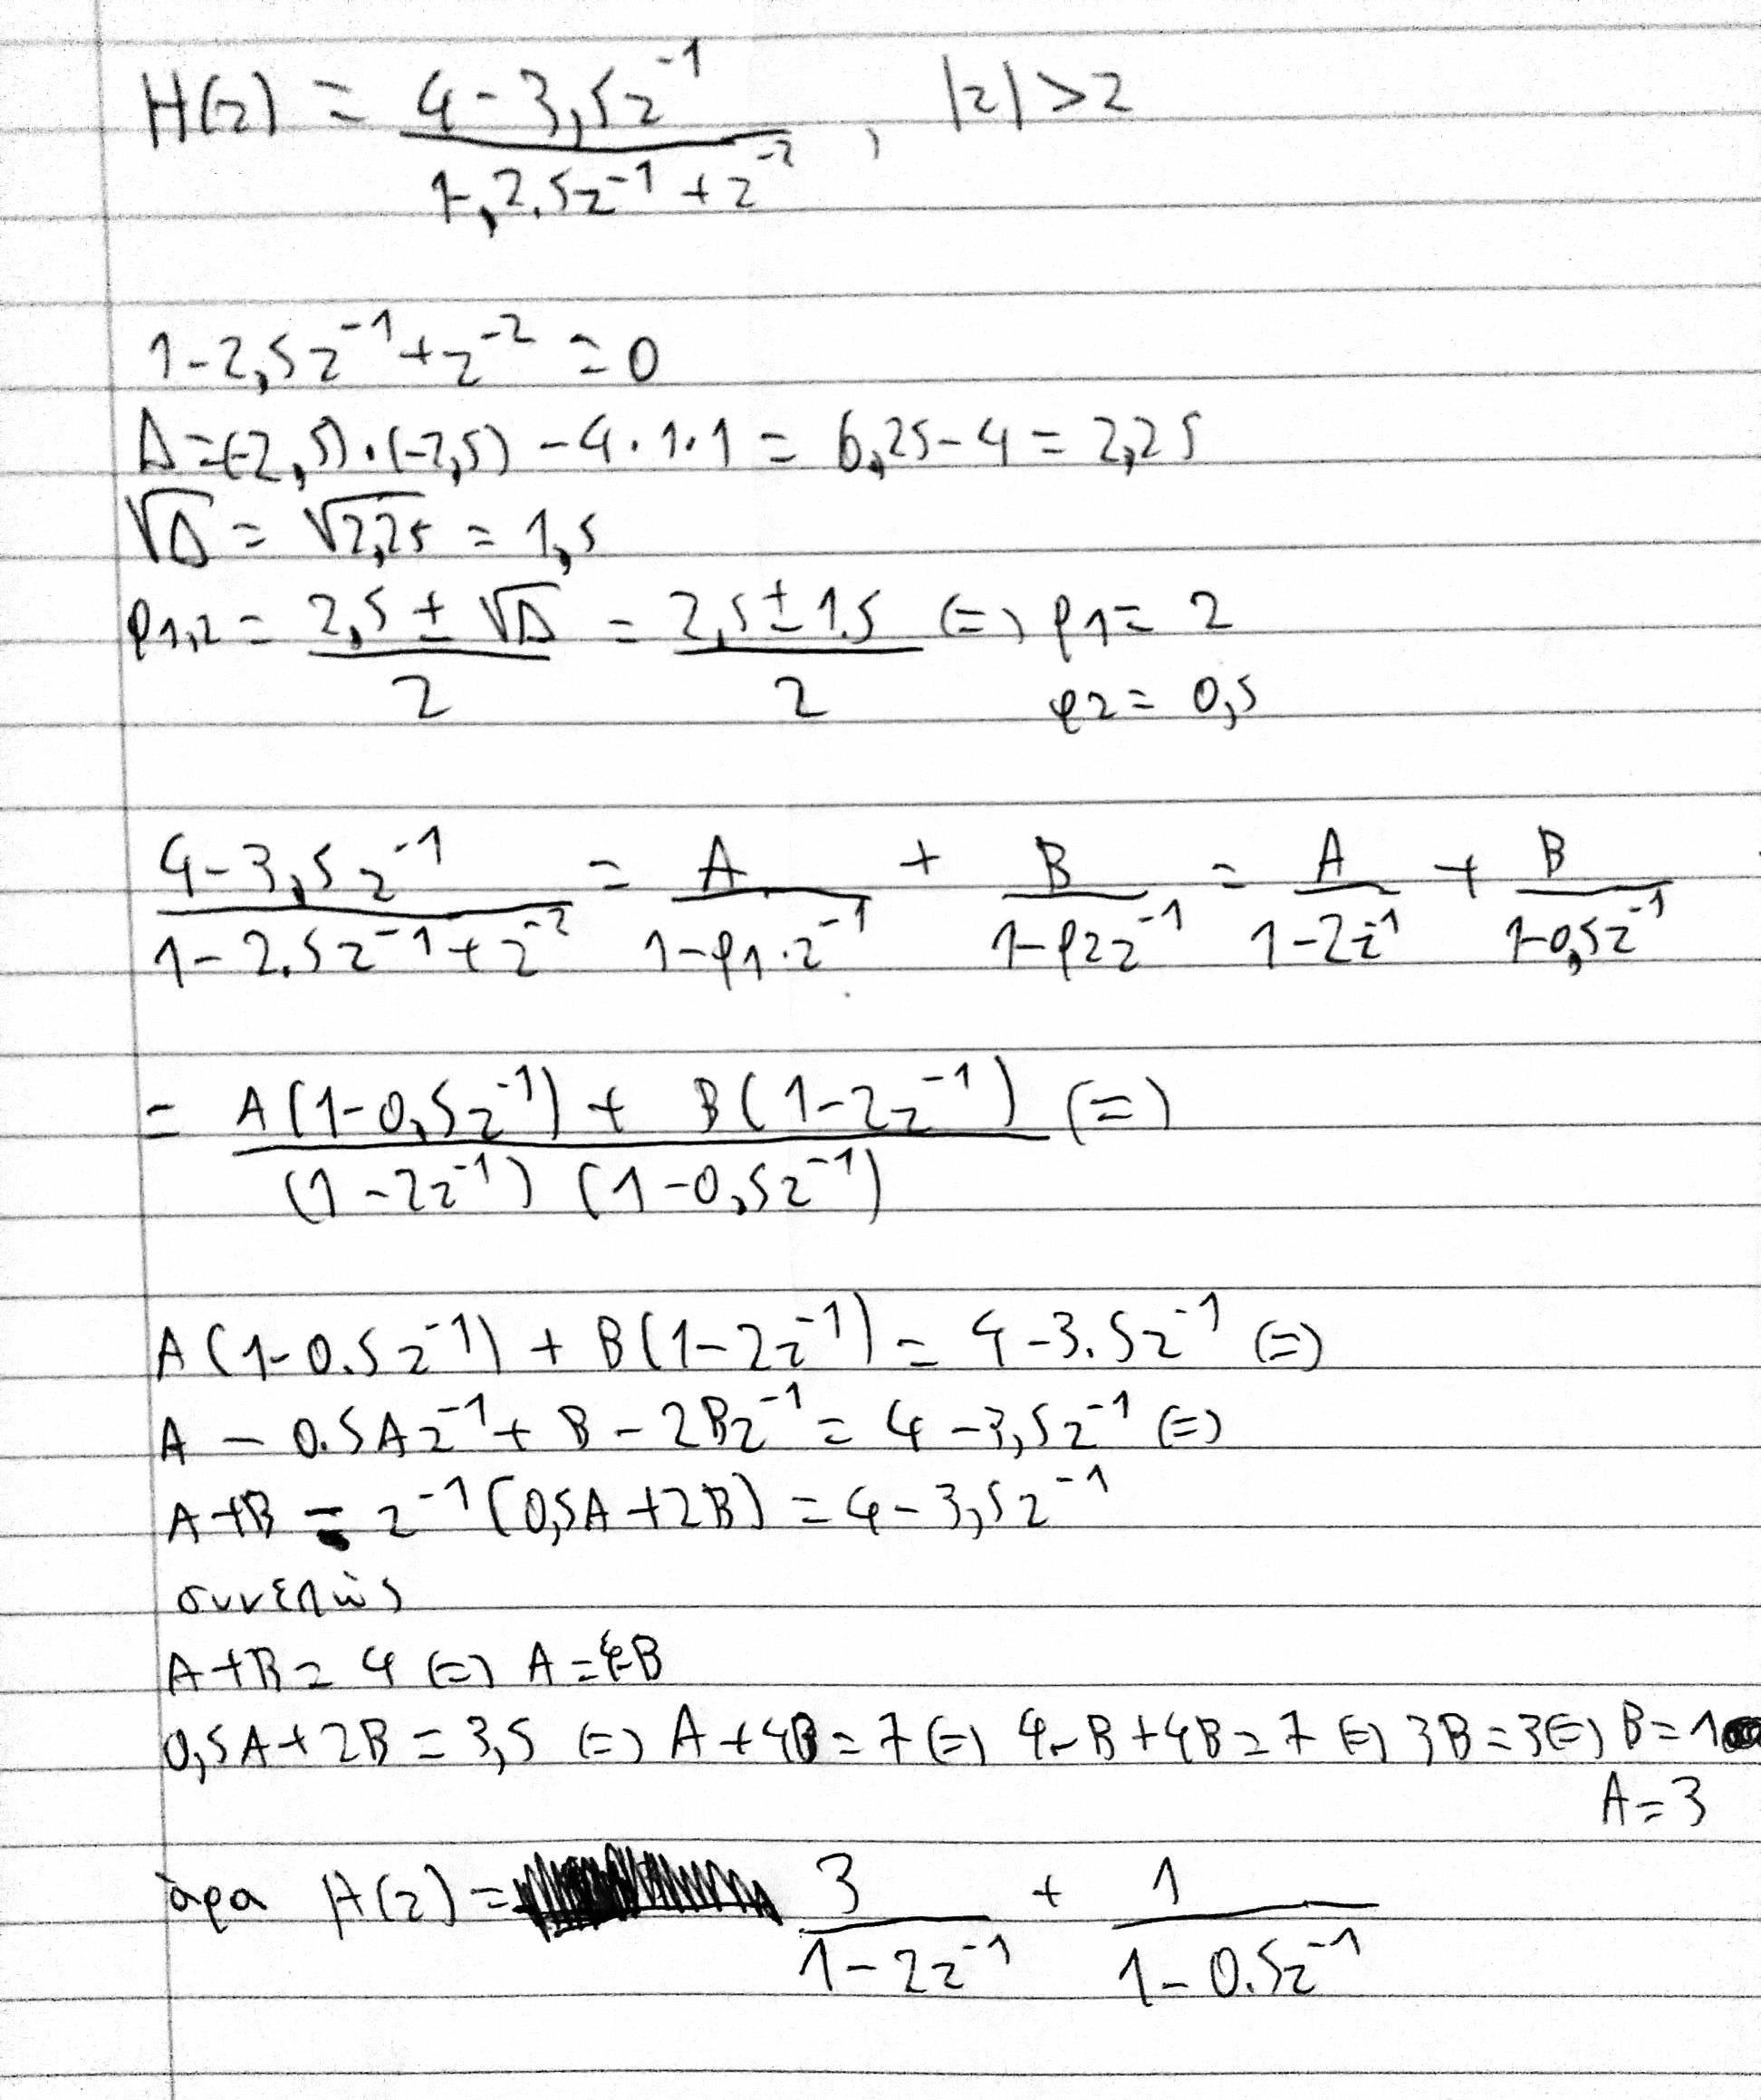 H(z) = (4-3,5z^-1)/(1-2,5z^-1+z^-2), |z|>2
1-2,5z^-1+z^-2=0
Δ=(-2,5)·(-2,5)-4·1·1=6,25-4=2,25
√Δ=√2,25=1,5
ρ1,2=(2,5±√Δ)/2=(2,5±1.5)/2 (=) ρ1=2
ρ2=0,5
(4-3,5z^-1)/(1-2.5z^-1+z^-2)=A/(1-ρ1·z^-1)+B/(1-ρ2z^-1)=A/(1-2z^-1)+B/(1-0,5z^-1)
=(A(1-0,5z^-1)+B(1-2z^-1))/((1-2z^-1)(1-0,5z^-1)) (=)
A(1-0.5z^-1)+B(1-2z^-1)=4-3.5z^-1 (=)
A-0.5Az^-1+B-2Bz^-1=4-3,5z^-1 (=)
A+B-z^-1(0,5A+2B)=4-3,5z^-1
συνεπώς
A+B=4 (=) A=4-B
0,5A+2B=3,5 (=) A+4B=7 (=) 4-B+4B=7 (=) 3B=3 (=) B=1
A=3
άρα H(z)=3/(1-2z^-1)+1/(1-0.5z^-1)